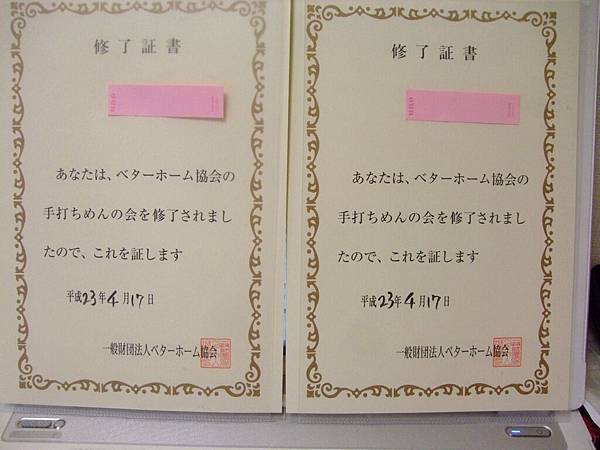 修了証書
あなたは、ベターホーム協会の
手打ちめんの会を修了されまし
たので、これを証します
平成23年4月17日
一般財団法人ベターホーム協会
修了証書
あなたは、ベターホーム協会の
手打ちめんの会を修了されまし
たので、これを証します
平成23年4月17日
一般財団法人ベターホーム協会